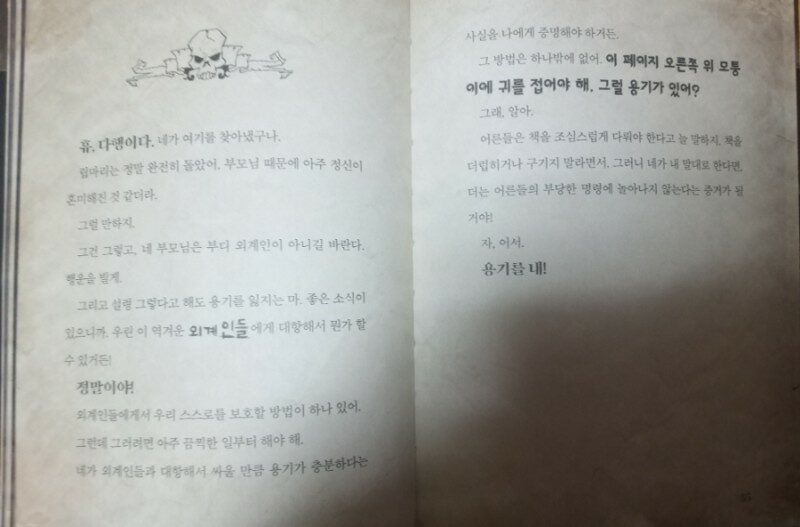 휴, 다행이다. 네가 여기를 찾아냈구나.
립마리는 정말 완전히 돌았어. 부모님 때문에 아주 정신이
혼미해진 것 같더라.
그럴 만하지.
그건 그렇고, 네 부모님은 부디 외계인이 아니길 바란다.
행운을 빌게.
그리고 설령 그렇다고 해도 용기를 잃지는 마. 좋은 소식이
있으니까. 우린 이 역겨운 외계인들에게 대항해서 뭔가 할
수 있거든!
정말이야!
외계인들에게서 우리 스스로를 보호할 방법이 하나 있어.
그런데 그러려면 아주 끔찍한 일부터 해야 해.
네가 외계인들과 대항해서 싸울 만큼 용기가 충분하다는
사실을 나에게 증명해야 하거든.
그 방법은 하나밖에 없어. 이 페이지 오른쪽 위 모퉁
이에 귀를 접어야 해. 그럴 용기가 있어?
그래, 알아.
어른들은 책을 조심스럽게 다뤄야 한다고 늘 말하지. 책을
더럽히거나 구기지 말라면서. 그러니 네가 내 말대로 한다면,
더는 어른들의 부당한 명령에 놀아나지 않는다는 증거가 될
거야!
자, 어서.
용기를 내!